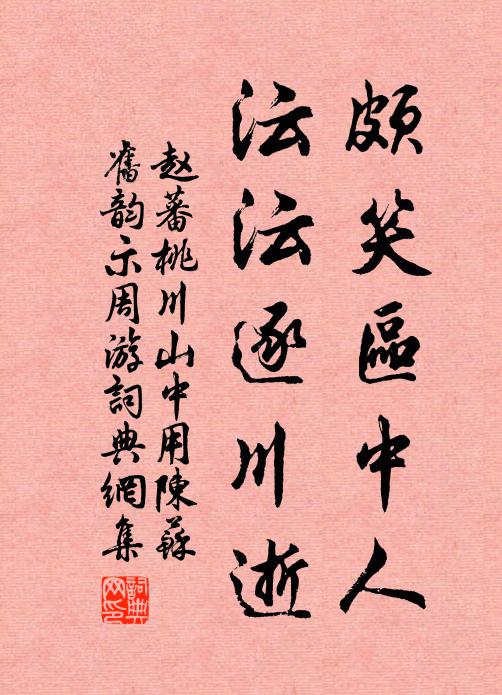 頗笑區中人
沄沄逐川逝
赵蕃桃川山中用陳蘇
舊韵示周游詞典網集
詞典网印